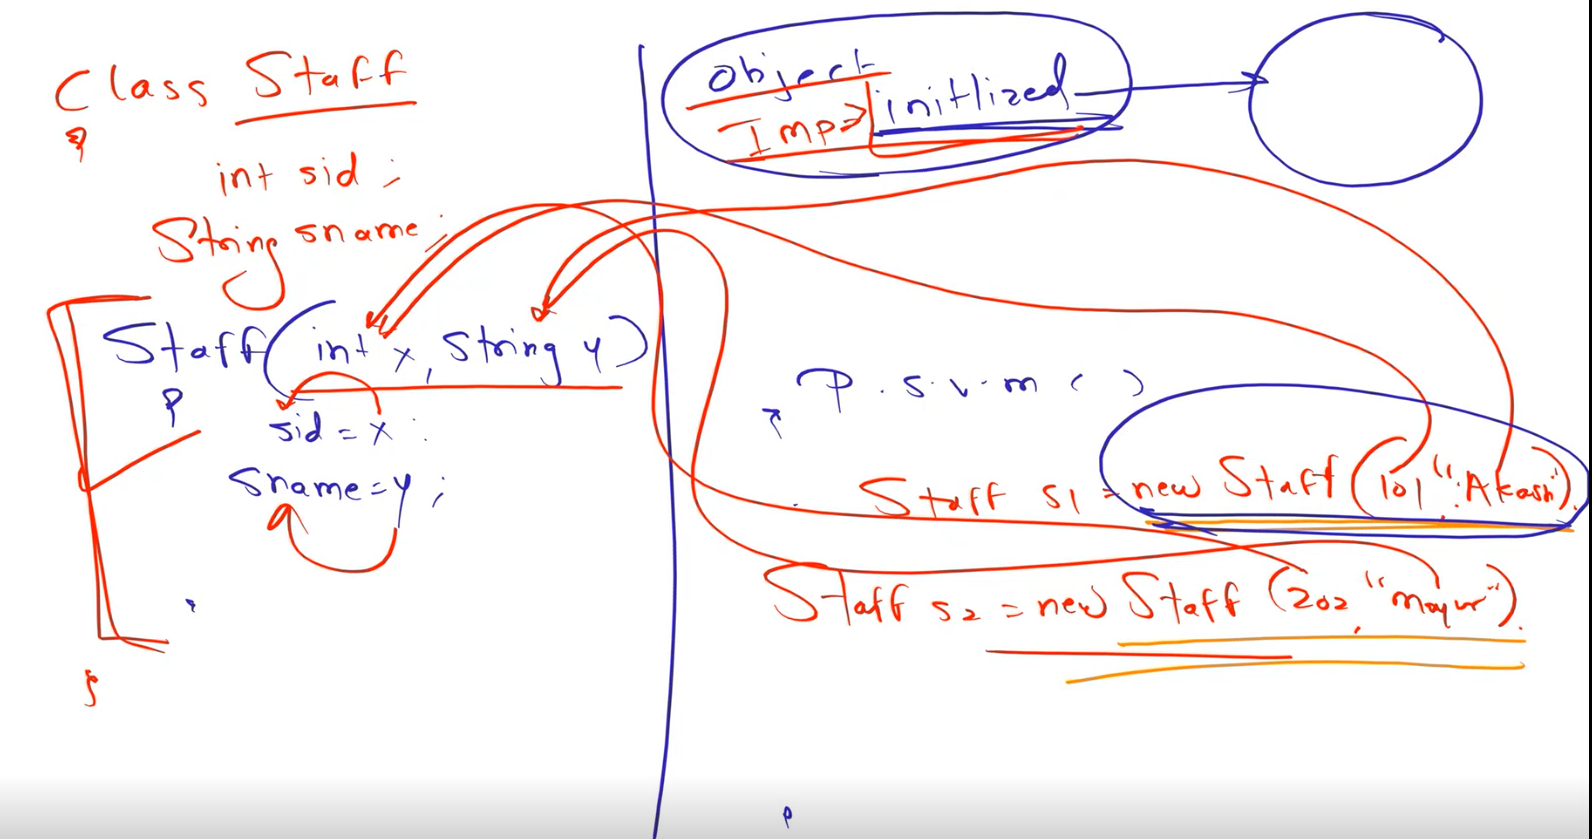 Class Staff
{
int sid ;
String sname ;
Staff( int x, String y)
{
sid = x ;
sname = y ;
}
Object
Imp initlized
P . s . v . m ( )
{
Staff s1 = new Staff (101 "Akash").
Staff s2 = new Staff (202, "mayur").